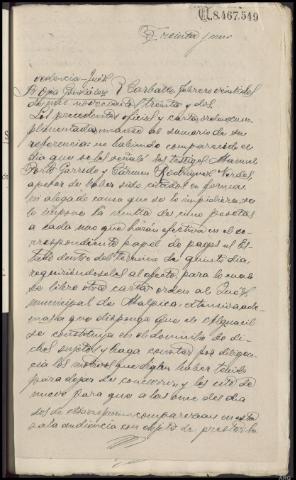 8.467.549
Treinta y uno
Providencia-Juez
Sr. Oza González Carballo febrero veintidos
de mil novecientos treinta y dos
Los precedentes oficio y carta-orden cum-
plimentada unanse al sumario de su
referencia; no habiendo comparecido el
dia que se les señaló los testigos Manuel
Garrido y Carmen Rodriguez
apesar de haber sido citados en forma
ni alegado causa que se lo impidiera, se
les impone la multa de cinco pesetas
a cada uno que harán efectiva en el co-
rrespondiente papel de pagos al Es-
tado dentro del termino de quinto dia,
requiriendoseles al efecto, para lo cual
se libre otra carta orden al Juez
municipal de Malpica, extensiva ade-
mas a que disponga que el Alguacil
se constituya en el domicilio de di-
chos sujetos y haga constar por diligen-
cia los motivos que hayan tenido
para dejar de concurrir, y les cite de
nuevo para que a las once del dia
dos de comparezcan en esta
sala audiencia con objeto de prestar